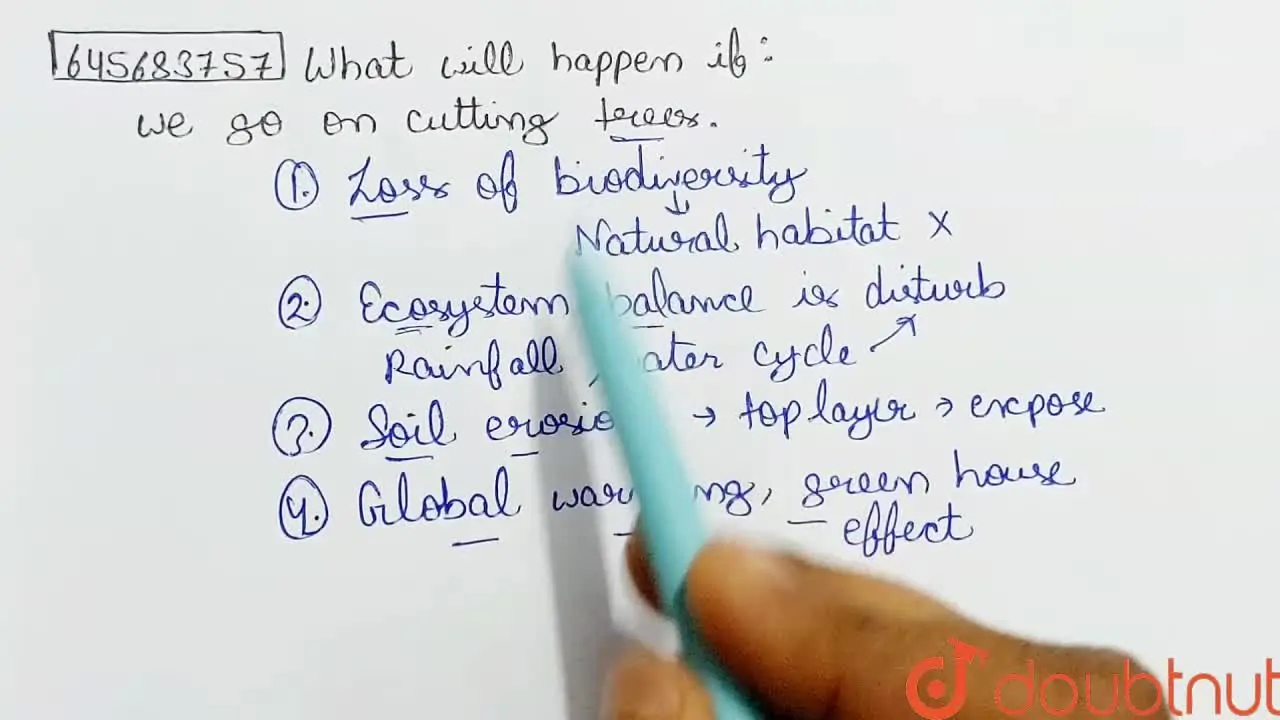 645683757 What will happen if:
we go on cutting trees.
1. Loss of biodiversity
↓
Natural habitat x
2. Ecosystem balance is disturb
Rainfall, cycle ↗
3. Soil → top layer → expose
4. Global green house
effect
doubtnut